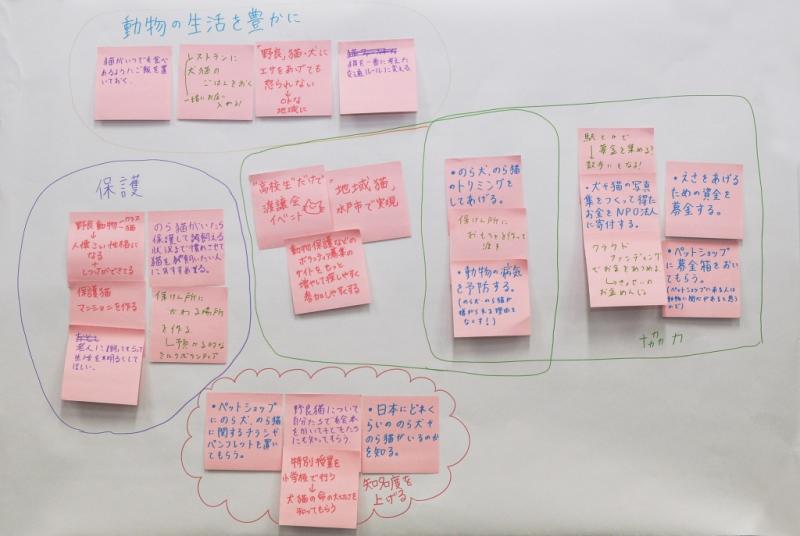 動物の生活を豊かに
猫がいつでも食べ
あるようにご飯を置
いておく。
レストランに
犬猫の
ごはんをおく
一緒にお店に
入れる!
「野良」猫・犬に
エサをあげても
怒られない
↓
OKな
地域に
猫を一番に考えた
交通ルールに変える。
保護
野良動物-猫 カラス
↓
人懐こい性格に
なる
+
しつけができてる
保護猫
マンションを作る
老人に飼ってもらって
生活を明るくして
ほしい。
のら猫がいたら
保護して
猫を飼いたい人
保けん所に
かわる場所
を作る
"高校生"だけで
譲議会
イベント
「地域猫」
水戸市で実現
動物保護などの
ボランティア募集の
サイトをもっと
増やして探しやすく
参加しやすくする
・のら犬、のら猫
のトリミングを
してあげる。
保けん所に
おもちゃを作って
渡す
・動物の病気
を予防する。
(のら犬・のら猫が
嫌がられる理由を
なくす!)
駅とかで
↓募金を集める!
散歩にもなる!
・犬や猫の写真
集をつくって得た
お金をNPO法人
に寄付する。
クラウド
ファンディング
でお金をあつめる
・えさをあげる
ための資金を
募金する。
・ペットショップ
に募金箱をおいて
もらう。
(ペットショップにある人は
動物に関心があると思う
ので)
協力
・ペットショップ
にのら犬、のら猫
に関するチラシや
パンフレットを置い
てもらう。
野良猫について
自分たちで絵本
をかいて子どもたち
にも知ってもらう。
特別授業を
小学校で行う
↓
犬猫の命の大切さを
知ってもらう
・日本にどれく
らいののら犬や
のら猫がいるのか
を知る。
知名度を
上げる